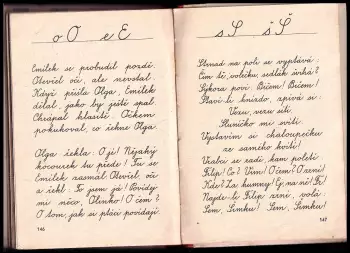 o O e E
Emilek se probudil pozdě.
Otevřel oči, ale nevstal.
Když přišla Olga, Emilek
dělal, jako by ještě spal.
Chrápal hlasitě. Očkem
pokukoval, co řekne Olga.
Olga řekla: Ojej! Nějaký
kocourek tu přede! Tu se
Emilek zasmál. Otevřel oči
a řekl: To jsem já! Povídej
mi něco, Olinko! O čem?
O tom, jak si ptáci povídají.
146
s S š Š
Strnad na poli se vyptává:
Čím tě, volečku, sedlák švihá?
Sýkora poví: Bičem! Bičem!
Staví-li hnízdo, zpívá si:
Vezu, vezu síti.
Sluníčko mi svítí.
Vystavím si chaloupečku
ze samého kvítí!
Vrabci se radí, kam poletí:
Filip! Co? Vím! O čem? O zrní!
Kde? Za humny!
Najde-li Filip zrní, volá:
Sem, Šimku! Sem, Šimku!
147